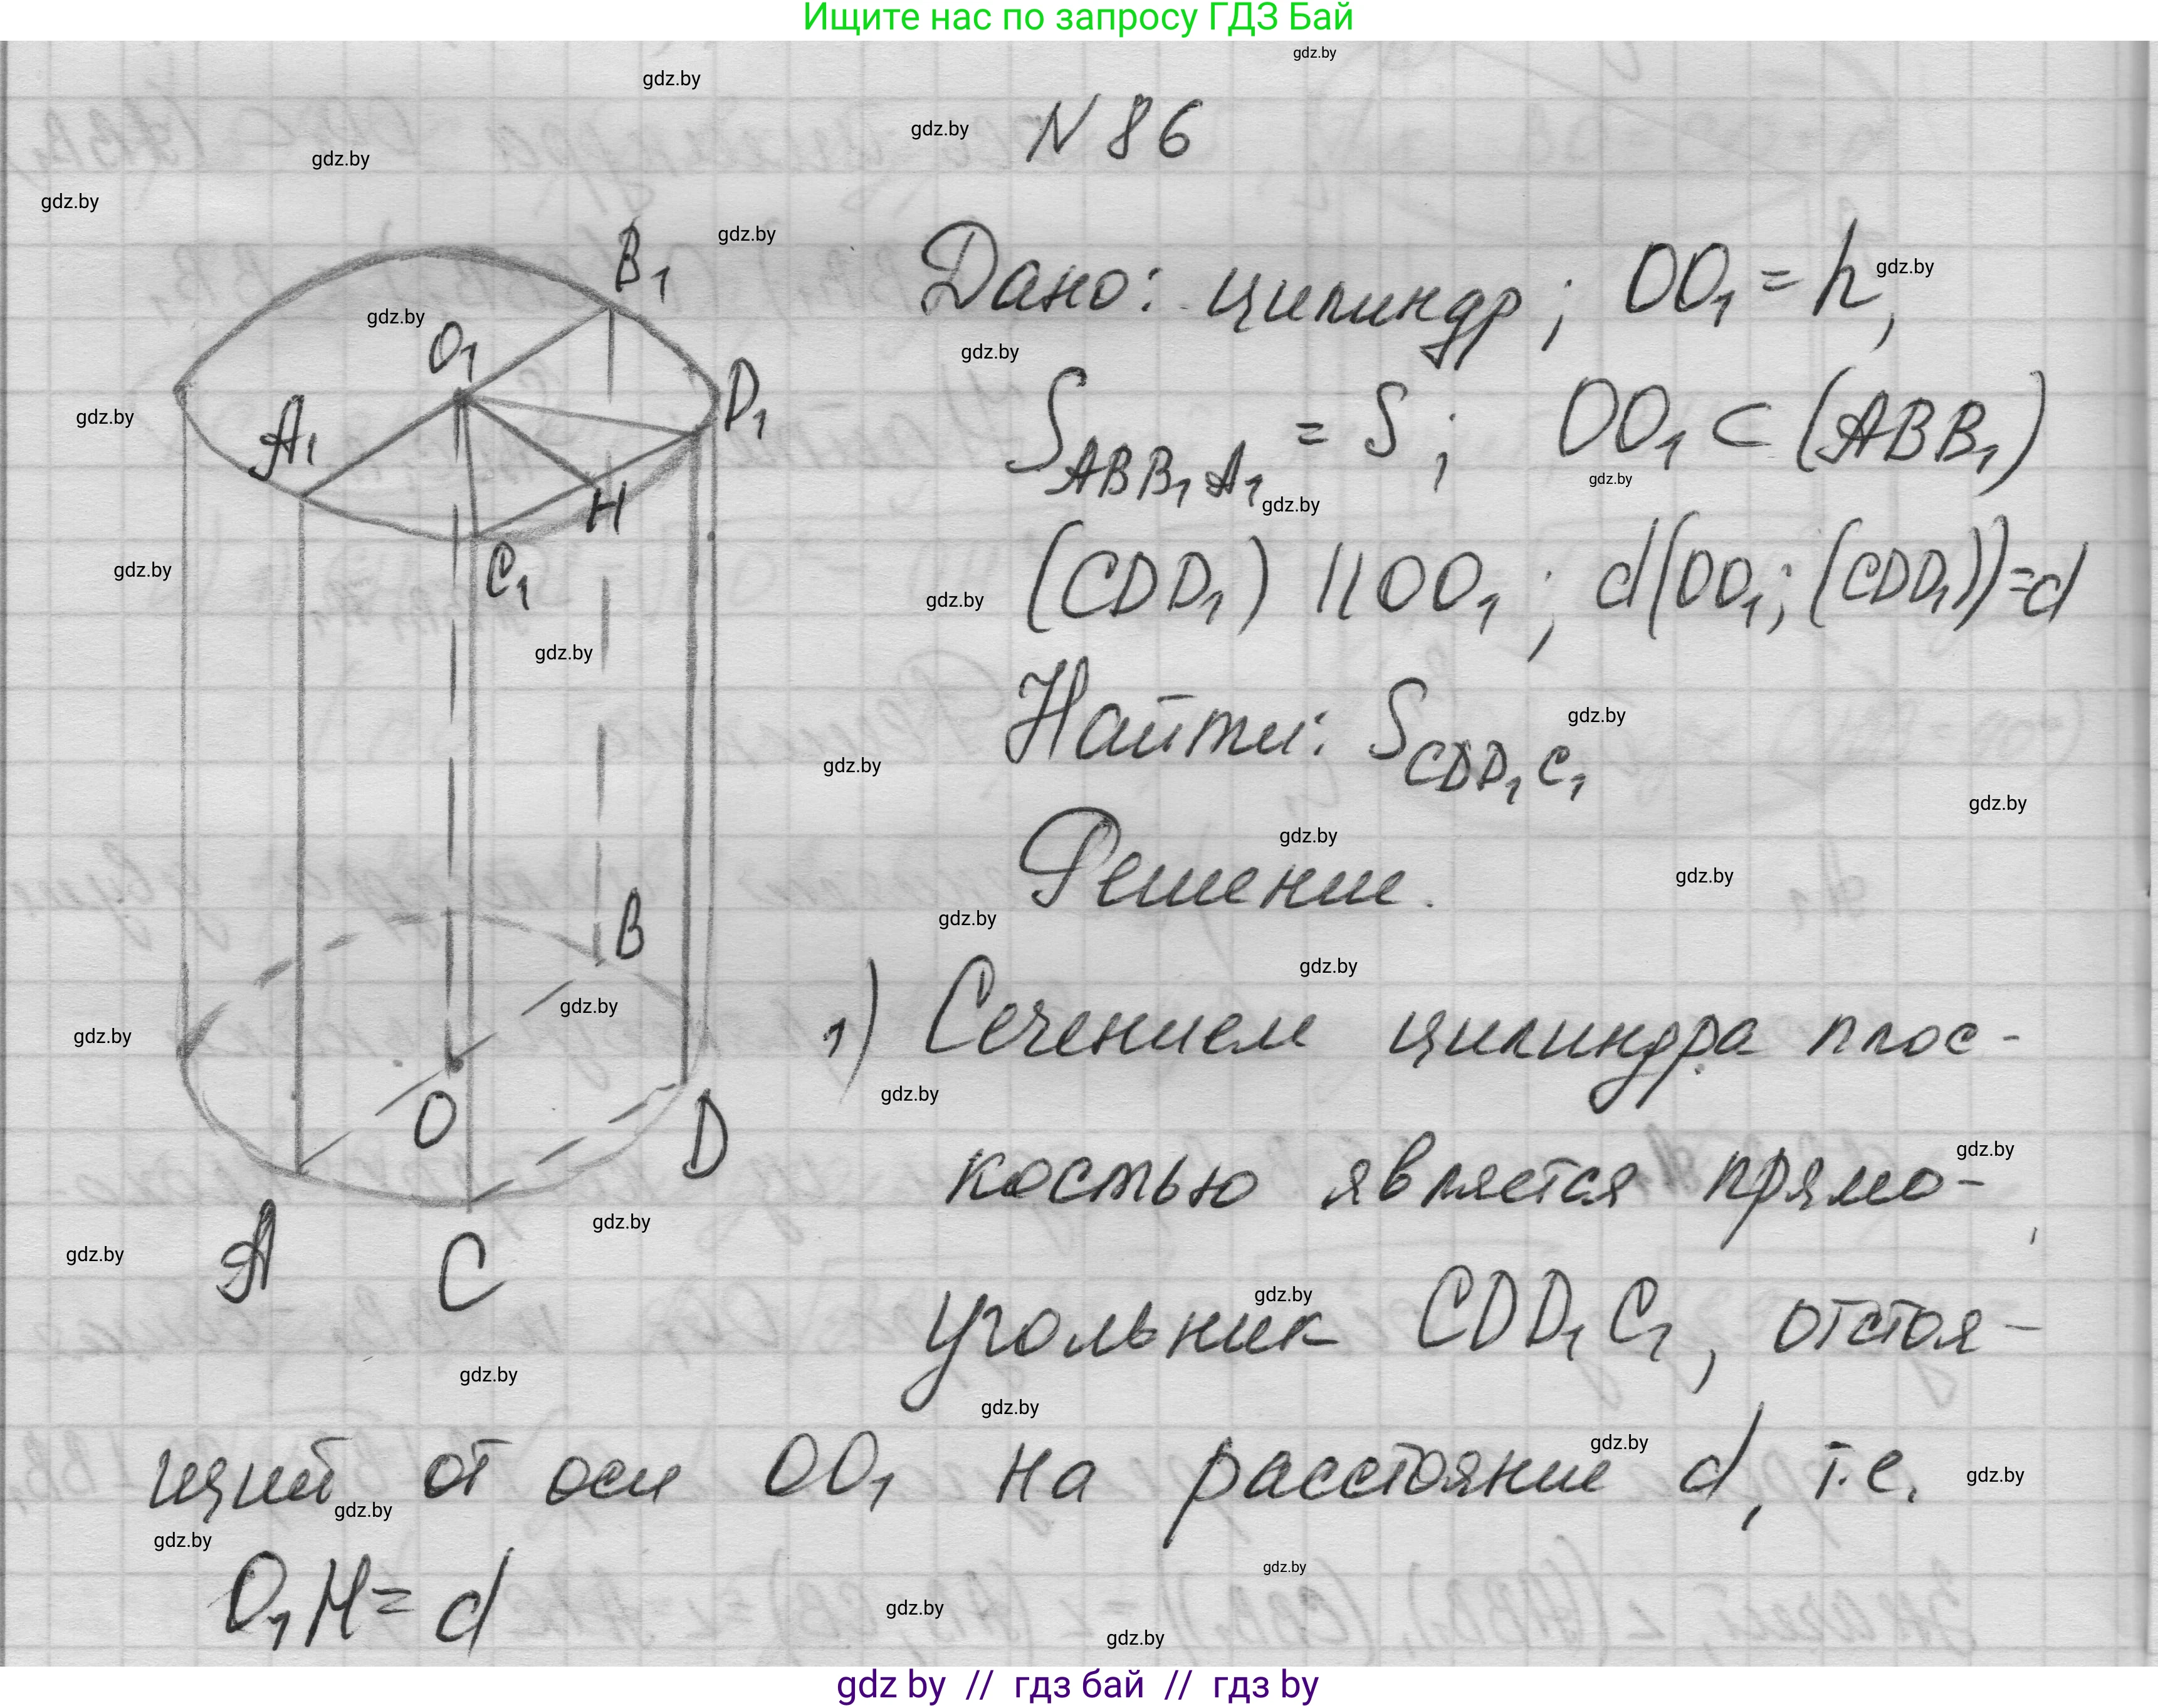 Ищите нас по запросу ГДЗ Бай
N 86
Дано: цилиндр; OO₁ = h,
S_ABB₁A₁ = S; OO₁ ⊂ (ABB₁)
(CDD₁) || OO₁; d(OO₁; (CDD₁)) = d
Найти: S_CDD₁C₁
Решение.
1) Сечением цилиндра плос-
костью является прямо-
угольник CDD₁C₁, отстоя-
щий от оси OO₁ на расстояние d, т.е.
O₁H = d
B₁
O₁
D₁
A₁
H
C₁
B
O
D
A
C
gdz.by
gdz by // гдз бай // гдз by